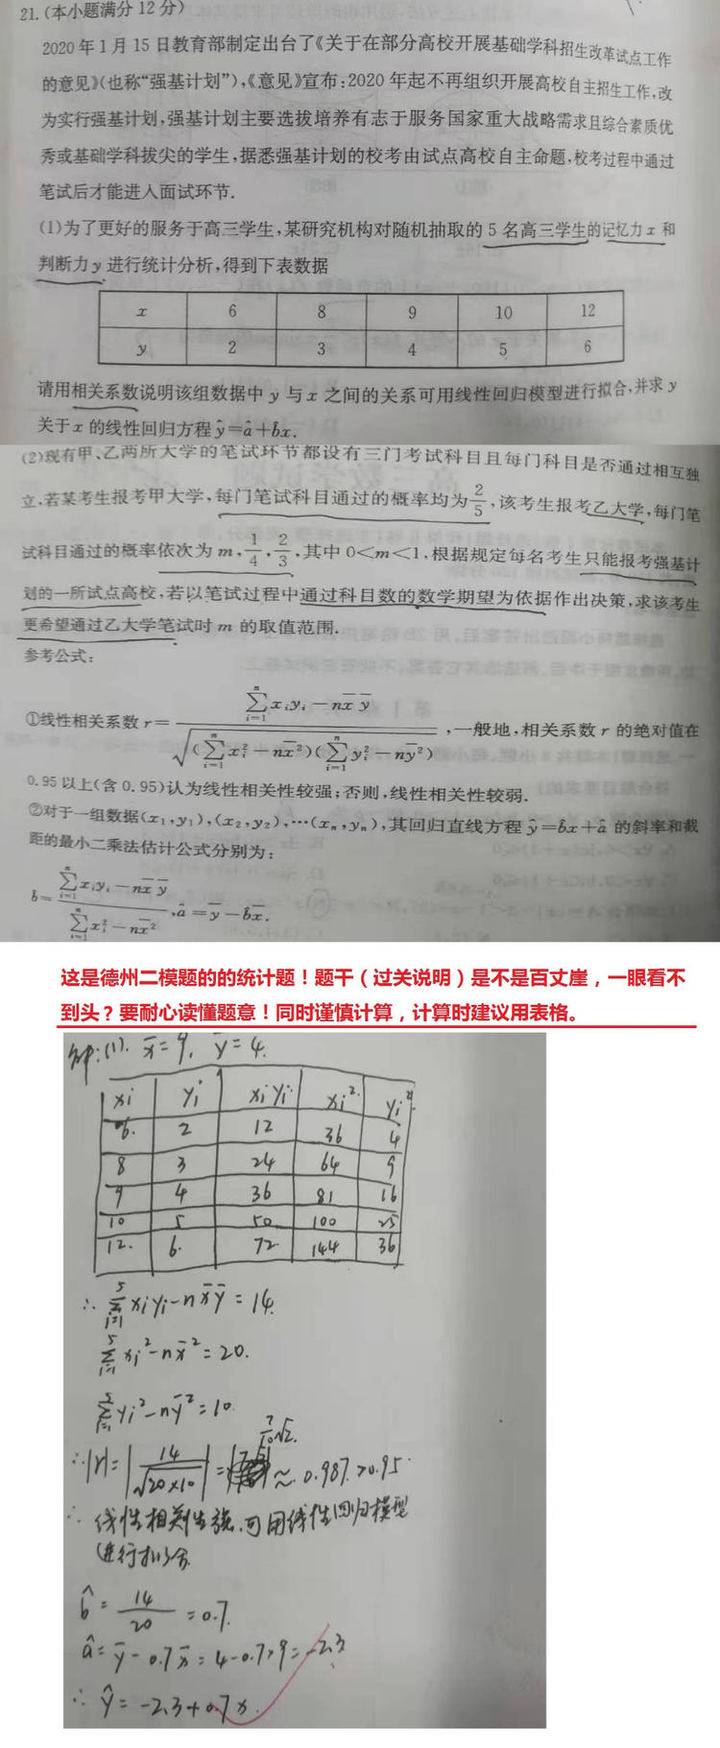 21.(本小题满分12分)
2020年1月15日教育部制定出台了《关于在部分高校开展基础学科招生改革试点工作
的意见》(也称“强基计划”),《意见》宣布:2020年起不再组织开展高校自主招生工作,改
为实行强基计划,强基计划主要选拔培养有志于服务国家重大战略需求且综合素质优
秀或基础学科拔尖的学生,据悉强基计划的校考由试点高校自主命题,校考过程中通过
笔试后才能进入面试环节.
(1)为了更好的服务于高三学生,某研究机构对随机抽取的5名高三学生的记忆力x和
判断力y进行统计分析,得到下表数据
x 6 8 9 10 12
y 2 3 4 5 6
请用相关系数说明该组数据中y与x之间的关系可用线性回归模型进行拟合,并求y
关于x的线性回归方程ŷ=â+b̂x.
(2)现有甲、乙两所大学的笔试环节都设有三门考试科目且每门科目是否通过相互独
立,若某考生报考甲大学,每门笔试科目通过的概率均为2/5,该考生报考乙大学,每门笔
试科目通过的概率依次为m,1/4,2/3,其中0<m<1,根据规定每名考生只能报考强基计
划的一所试点高校,若以笔试过程中通过科目数的数学期望为依据作出决策,求该考生
更希望通过乙大学笔试时m的取值范围.
参考公式:
①线性相关系数r=(∑_{i=1}^{n}x_iy_i-nx̄ȳ)/√((∑_{i=1}^{n}x_i²-nx̄²)(∑_{i=1}^{n}y_i²-nȳ²)),一般地,相关系数r的绝对值在
0.95以上(含0.95)认为线性相关性较强;否则,线性相关性较弱.
②对于一组数据(x₁,y₁),(x₂,y₂),…(xₙ,yₙ),其回归直线方程ŷ=b̂x+â的斜率和截
距的最小二乘法估计公式分别为:
b̂=(∑_{i=1}^{n}x_iy_i-nx̄ȳ)/(∑_{i=1}^{n}x_i²-nx̄²),â=ȳ-b̂x̄.
这是德州二模题的的统计题!题干(过关说明)是不是百丈崖,一眼看不
到头?要耐心读懂题意!同时谨慎计算,计算时建议用表格。
解:(1). x̄=9, ȳ=4.
xi yi xiyi xi² yi²
6. 2 12 36 4
8 3 24 64 9
9 4 36 81 16
10 5 50 100 25
12. 6. 72 144 36
∴ ∑_{i=1}^{5}xiyi-nx̄ȳ=14.
∑_{i=1}^{5}xi²-nx̄²=20.
∑_{i=1}^{5}yi²-nȳ²=10.
∴|r|=|14/√(20×10)|=7/10√2.≈0.987.>0.95.
∴ 线性相关性强,可用线性回归模型
进行拟合
b̂=14/20=0.7.
â=ȳ-0.7x̄=4-0.7×9=-2.3
∴ ŷ=-2.3+0.7x.